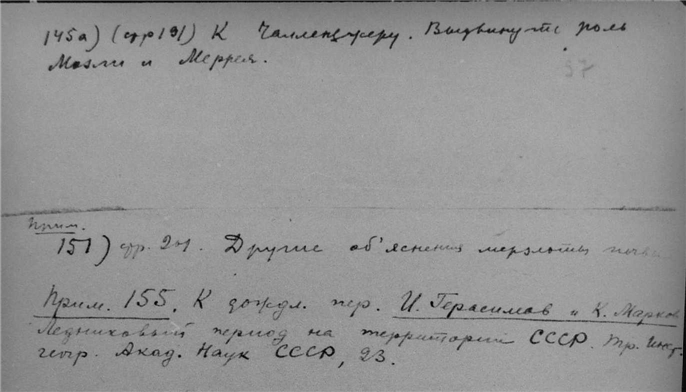 145а) (стр 191) К Чалленджеру. Выдвинуть роль
Мозли и Меррея.
37
Прим.
151) стр. 201. Другие об'яснения мерзлоты почвы
Прим. 155. К дождл. пер. И. Герасимов и К. Марков
Ледниковый период на территории СССР. Тр. Инст.
геогр. Акад. Наук СССР, 23.